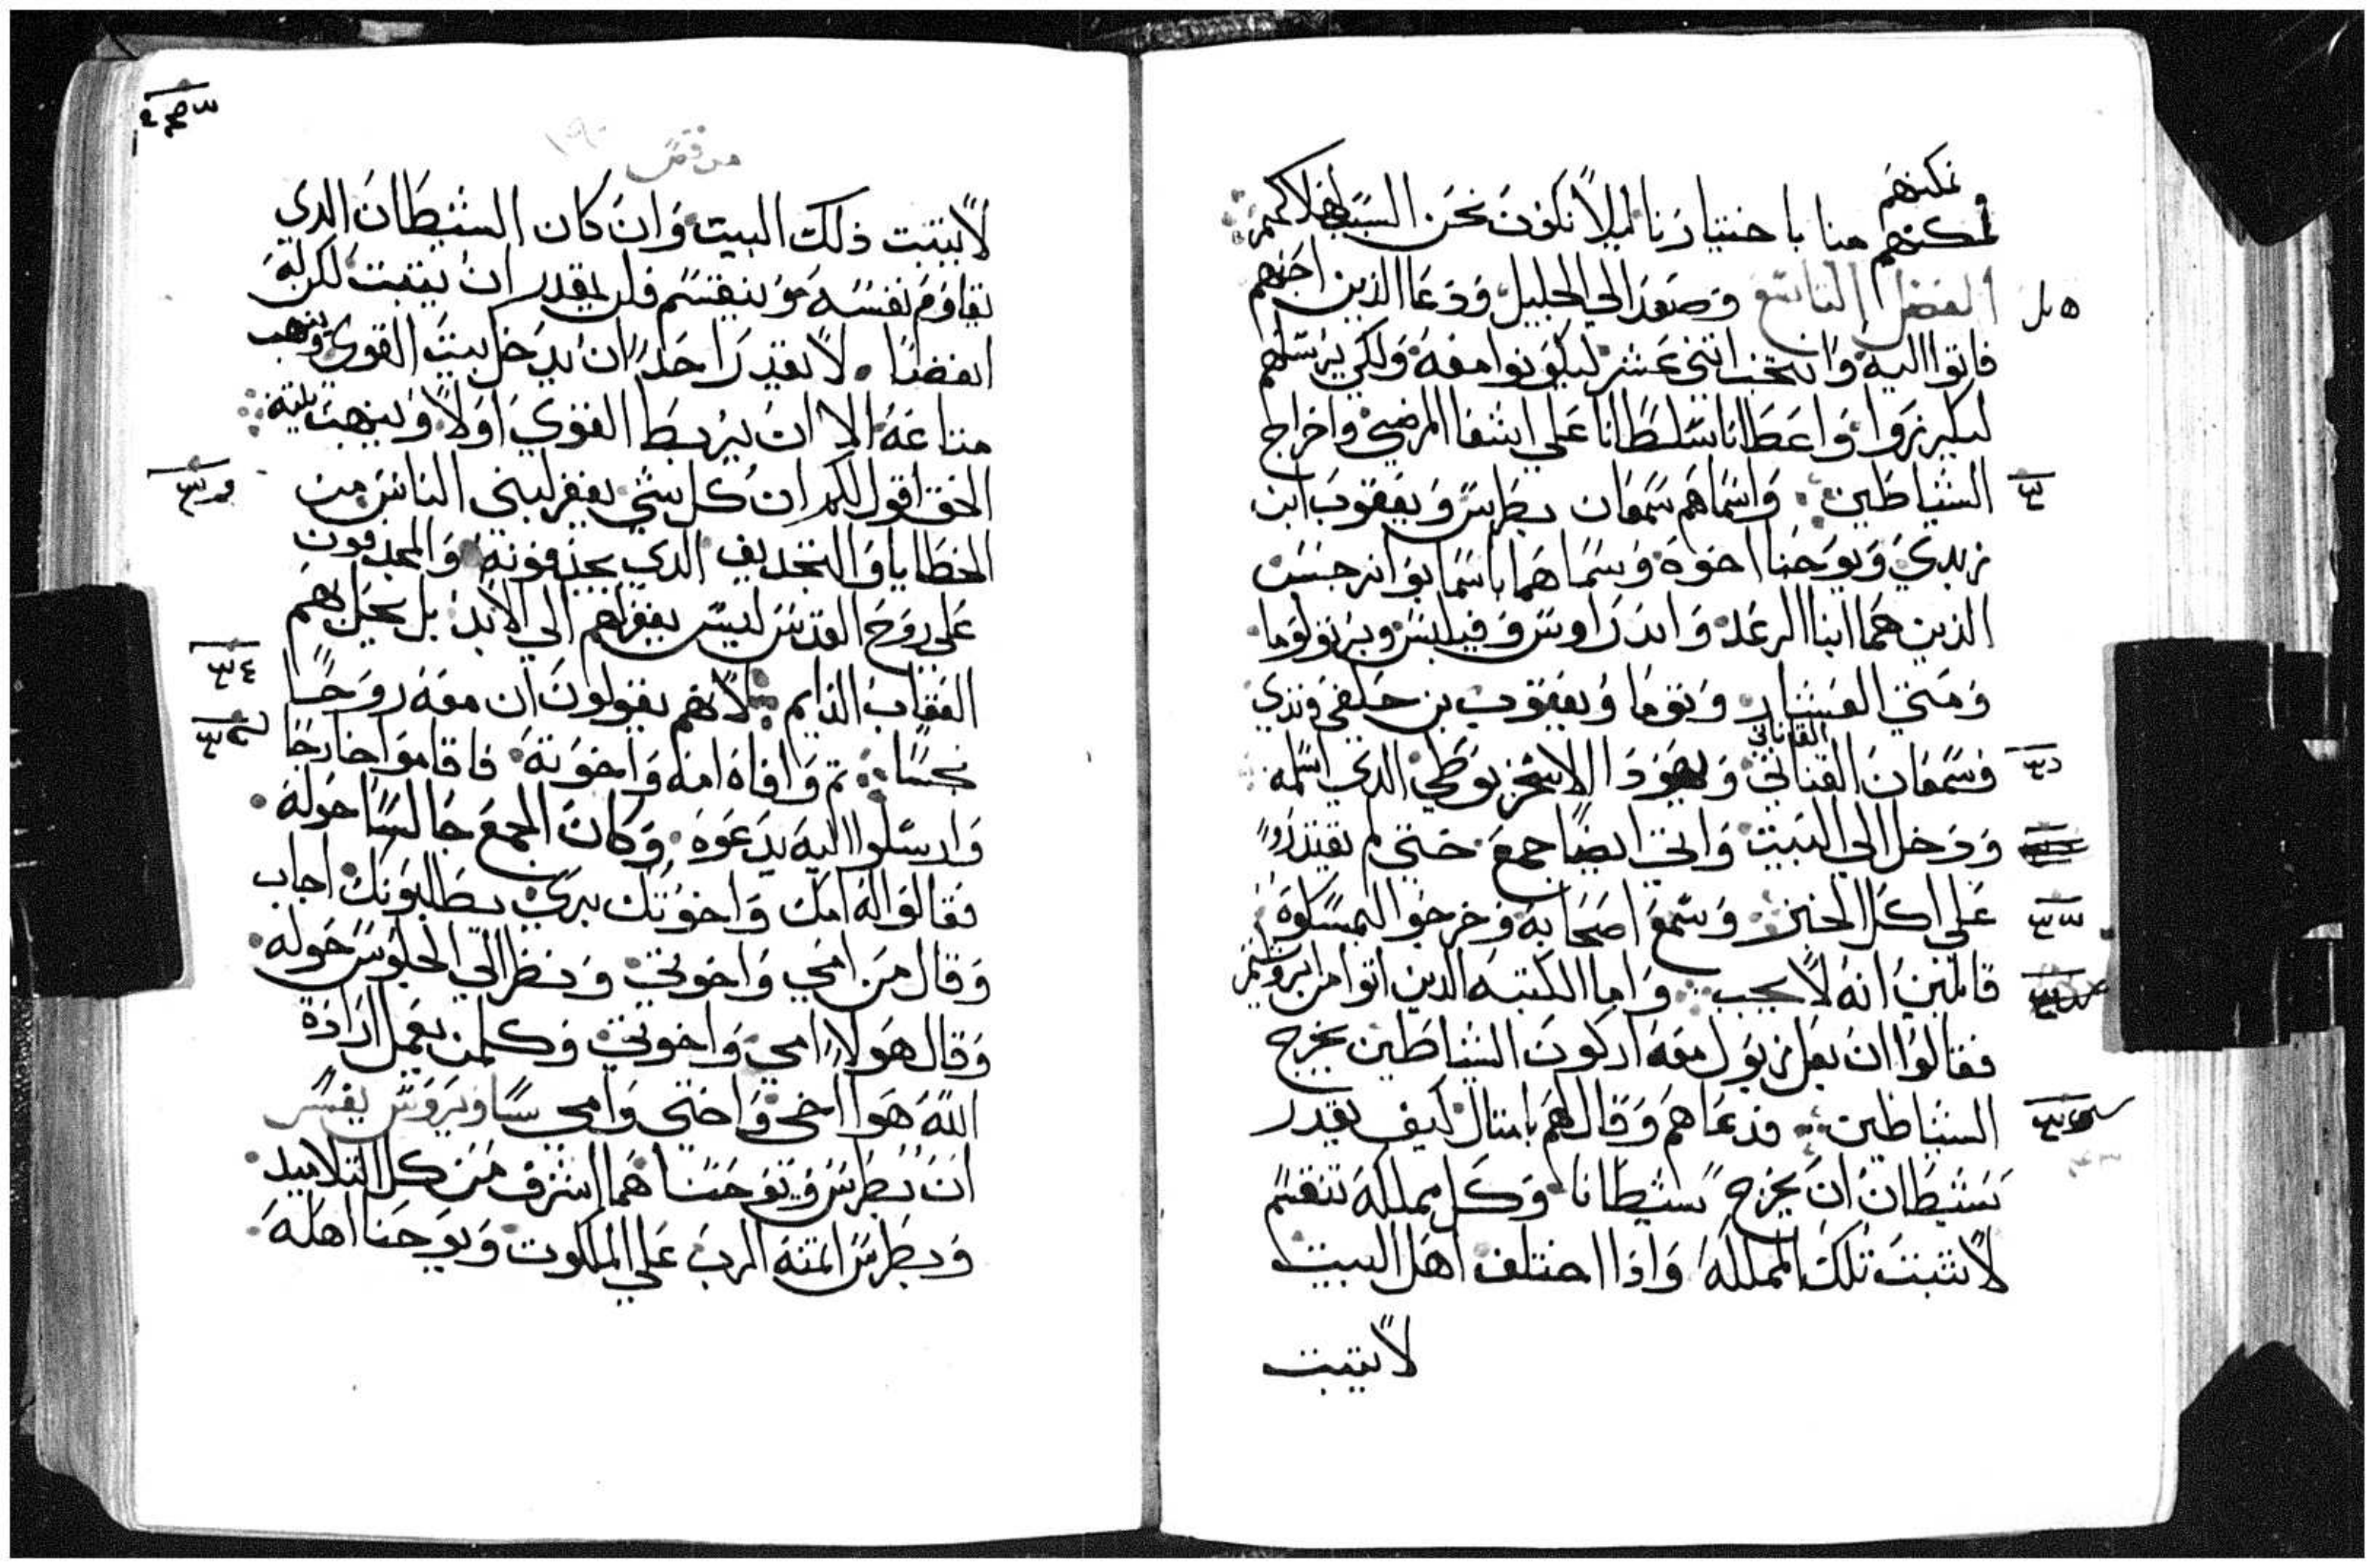 نمكنهم
نمكنهم منا باختيارنا ليلا نكون نحن السبب لهلاكهم
الفصل التاسع وصعد الي الجليل ودعا الذين احبهم
فاتوا اليه وانتخب اثني عشر ليكونوا معه ولكي يرسلهم
ليكرزوا واعطاانا سلطانا علي اشفا المرضي واخراج
الشياطين واسماهم سمعان بطرس ويعقوب ابن
زبدي ويوحنا اخوه وسماهما باسما بوانرجسس
الذين هما ابنا الرعد واندراوس وفيلبس وبرتولوما
ومتي العشار وتوما ويعقوب بن حلفي وتدي
القاناني
وسمعان القناني ويهودا الاسخريوطي الدي اسلمه
ودخل الي البيت واتي ايضا جمع حتي لم يقتدروا
علي اكل الخبز وسمع اصحابه وخرجوا ليمسكوه
قالين انه لا يجب واما الكتبه الدين اتوا من يروشليم
فقالوا ان بعلزبول معه اركون الشياطين يخرج
الشياطين فدعاهم وقال لهم بامتال كيف يقدر
شيطان ان يخرج شيطانا وكل مملكه تنقسم
لا تثبت تلك المملكه وادا اختلف اهل البيت
لا يتبت
مرقس ١٩٠
لا يتبت ذلك البيت وان كان الشيطان الدي
يقاوم نفسه وينقسم فلن يقدر ان يتبت لكن له
انقضا لا يقدر احد ان يدخل بيت القوي وينهب
متاعه الا ان يربط القوي اولا وينهب بيته
الحق اقول لكم ان كل شي يغفر لبني الناس من
الخطايا والتجديف الدي يجدفونه والمجدفون
علي روح القدس ليس يغفر لهم الي الابد بل يحل بهم
العقاب الدايم لانهم يقولون ان معه روحا
نجسا تم وافاه امه واخوته فاقاموا خارجا
وارسلوا اليه يدعوه وكان الجمع جالسا حوله
فقالوا له امك واخوتك برا يطلبونك اجاب
وقال من امي واخوتي ونظر الي الجلوس حوله
وقال هولا امي واخوتي وكلمن يعمل ارادة
الله هوا اخي واختي وامي ساويروس يفسر
ان بطرس ويوحنا هما اشرف من كل التلاميد
وبطرس امنه الرب علي الملكوت ويوحنا اهله